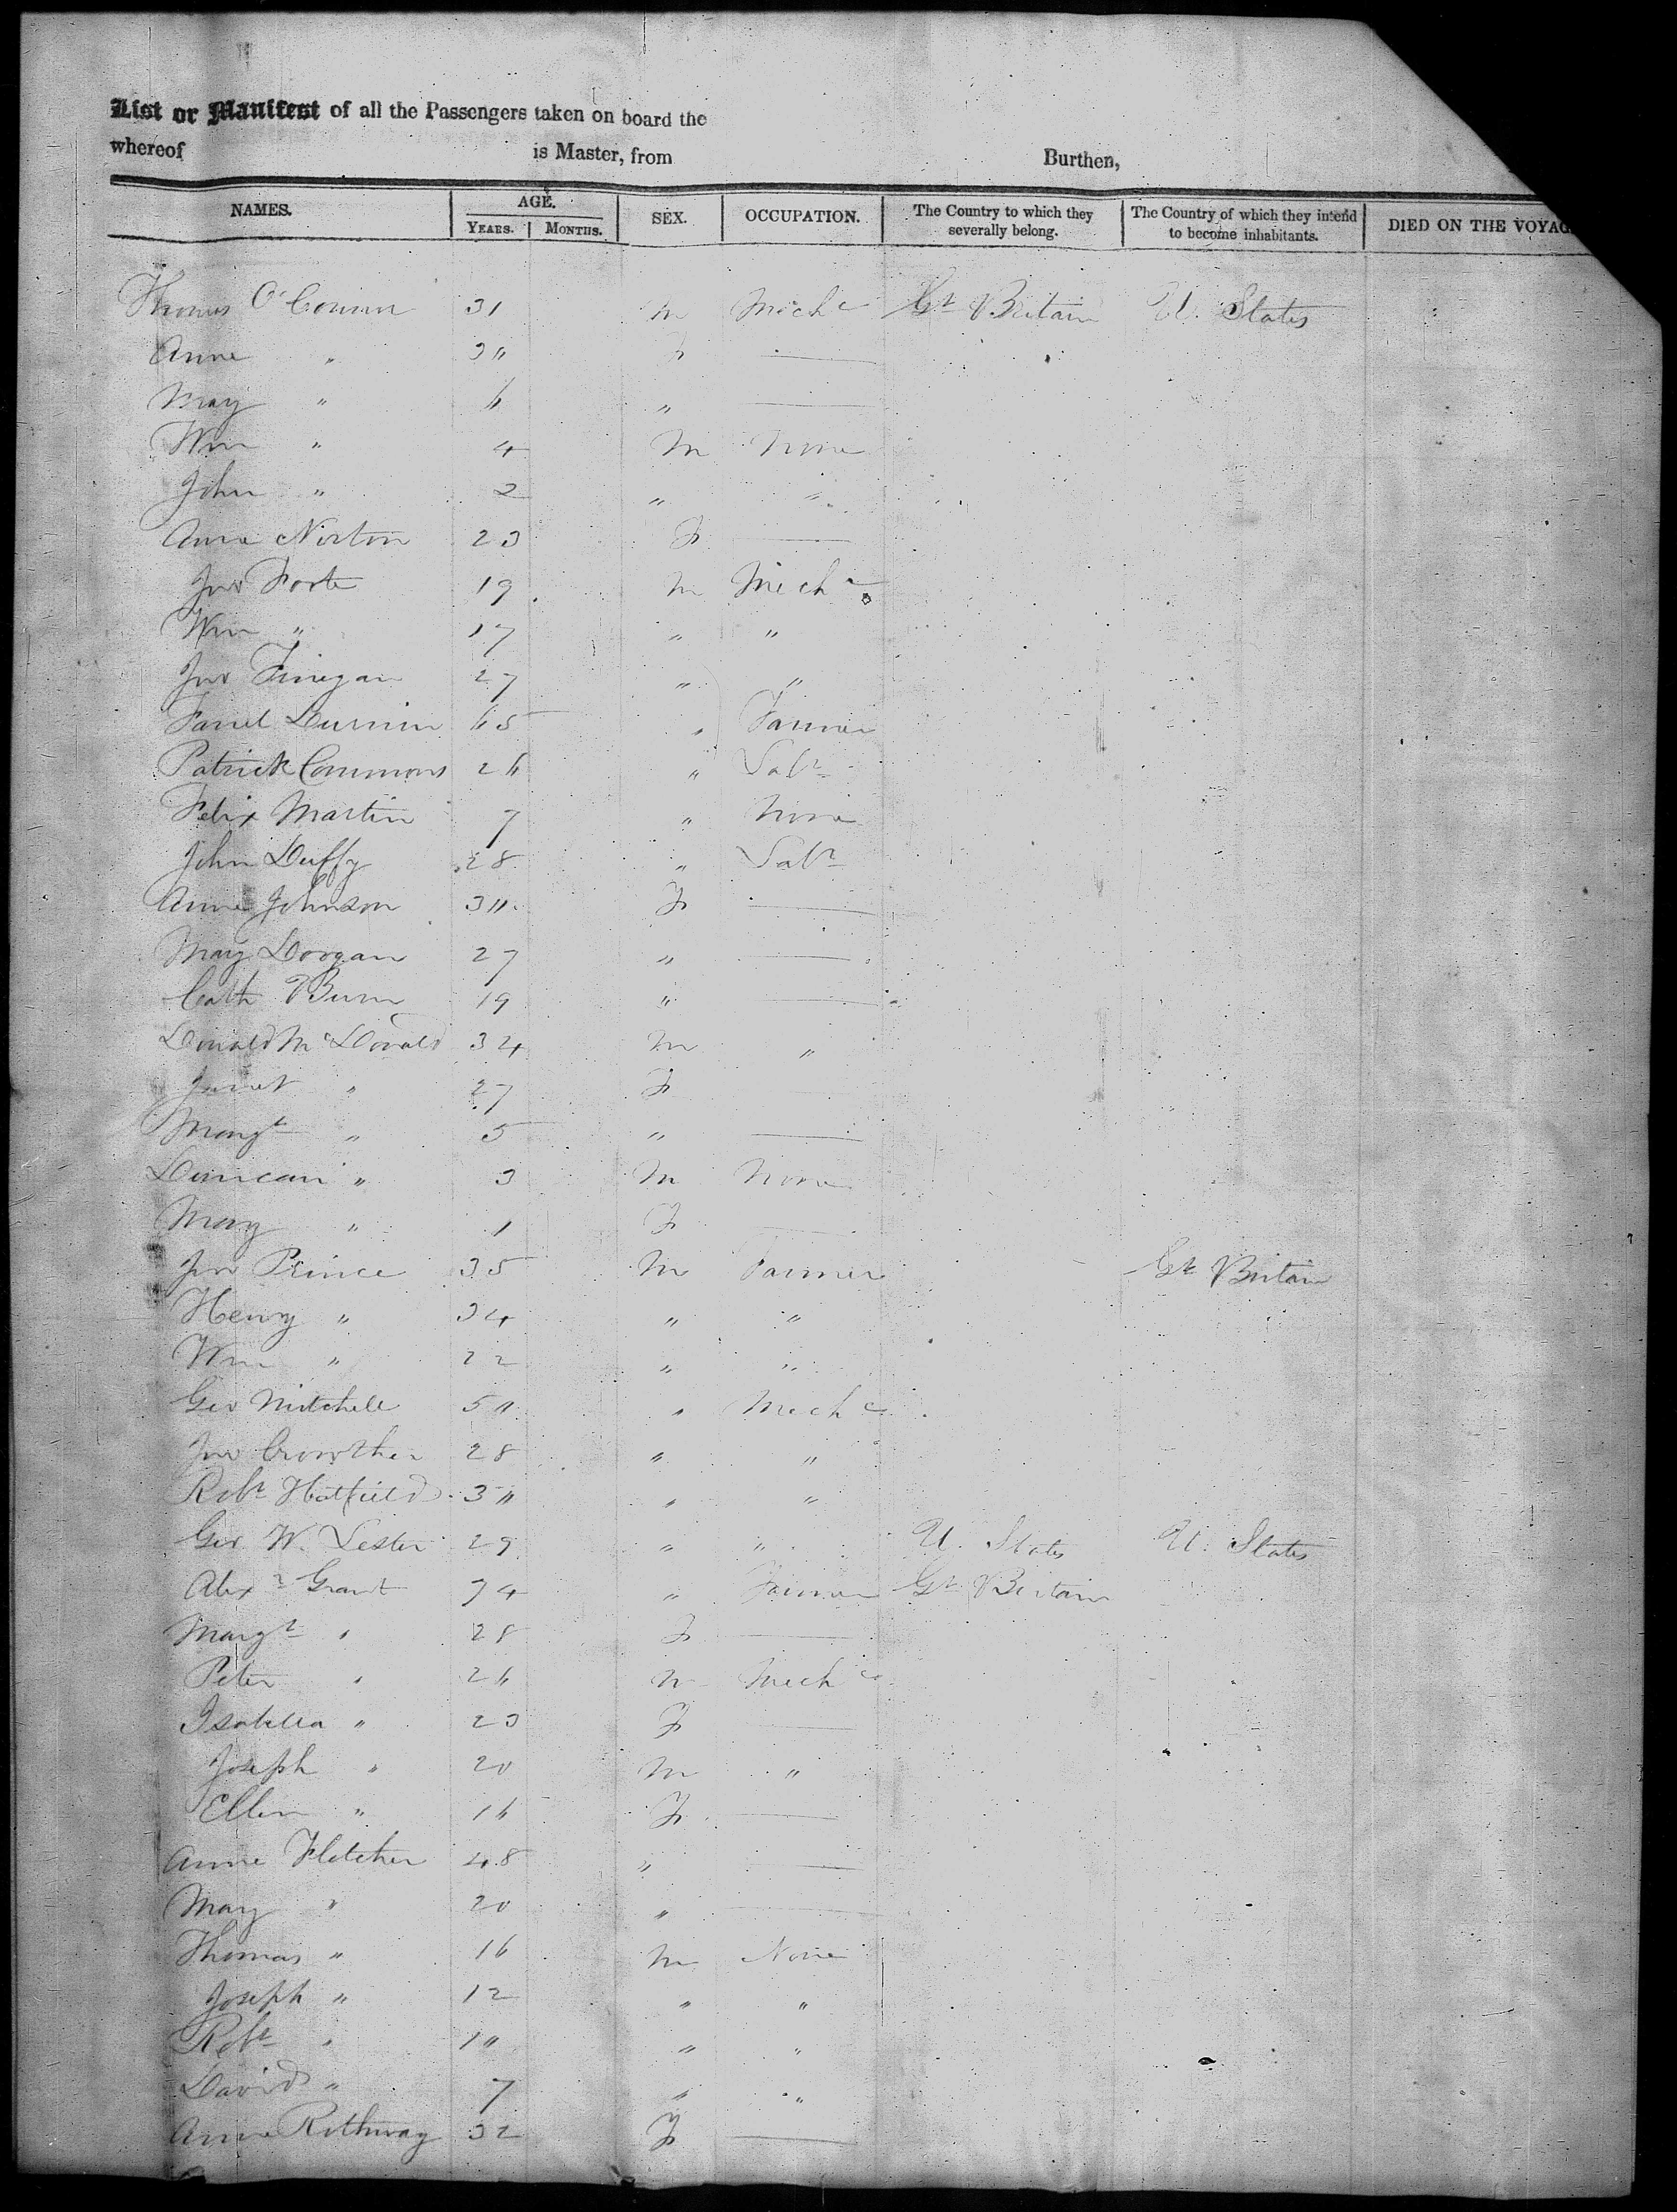 List or Manifest of all the Passengers taken on board the
whereof is Master, from Burthen,
NAMES. AGE. SEX. OCCUPATION. The Country to which they severally belong. The Country of which they intend to become inhabitants. DIED ON THE VOYAG
YEARS. MONTHS.
Thomas O'Connor 31 M Mechc Gt Britain U. States
Anne " 30 F —
Mary " 6 " —
Wm " 4 M None
John " 2 " "
Anne Norton 23 F —
Jno Foote 19 M Mechc
Wm " 17 " "
Jno Finegan 27 " "
Farrel Durnin 65 " Farmer
Patrick Commons 26 " Labr
Felix Martin 7 " None
John Duffy 28 " Labr
Anne Johnson 30 F —
Mary Doogan 27 " —
Cath Burn 19 " —
Donald McDonald 34 M "
Janet " 27 F
Margt " 5 " —
Duncan " 3 M None
Mary " 1 F —
Jno Prince 35 M Farmer Gt Britain
Henry " 34 " "
Wm " 22 " "
Geo Mitchell 50 " Mechc
Jno Crowther 28 " "
Robt Hatfield 30 " "
Geo W. Lester 29 " " U. States U. States
Alexr Grant 74 " Farmer Gt Britain
Margt " 28 F —
Peter " 26 M Mechc
Isabella " 23 F —
Joseph " 20 M "
Ellen " 16 F —
Anne Fletcher 48 " —
Mary " 20 " —
Thomas " 16 M None
Joseph " 12 " "
Robt " 10 " "
David " 7 " "
Anne Rothway 32 F —